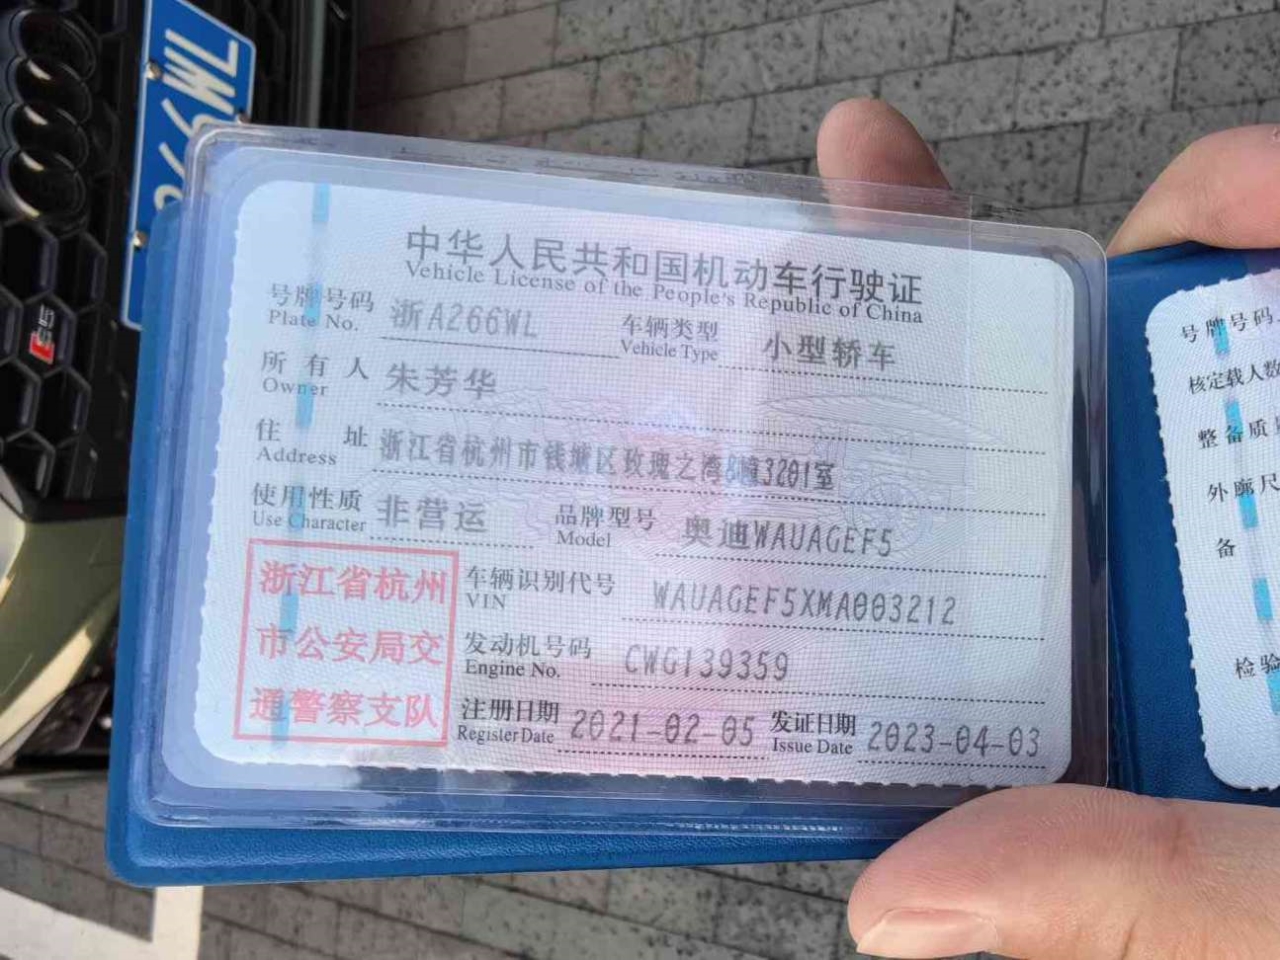 中华人民共和国机动车行驶证
Vehicle License of the People's Republic of China
号牌号码 Plate No. 浙A266WL 车辆类型 Vehicle Type 小型轿车
所有人 Owner 朱芳华
住址 Address 浙江省杭州市钱塘区玫瑰之湾8幢3201室
使用性质 Use Character 非营运 品牌型号 Model 奥迪WAUAGEF5
车辆识别代号 VIN WAUAGEF5XMA003212
发动机号码 Engine No. CWG139359
注册日期 Register Date 2021-02-05 发证日期 Issue Date 2023-04-03
浙江省杭州
市公安局交
通警察支队
号牌号码
核定载人数
整备质
外廓尺
备
检验
S5